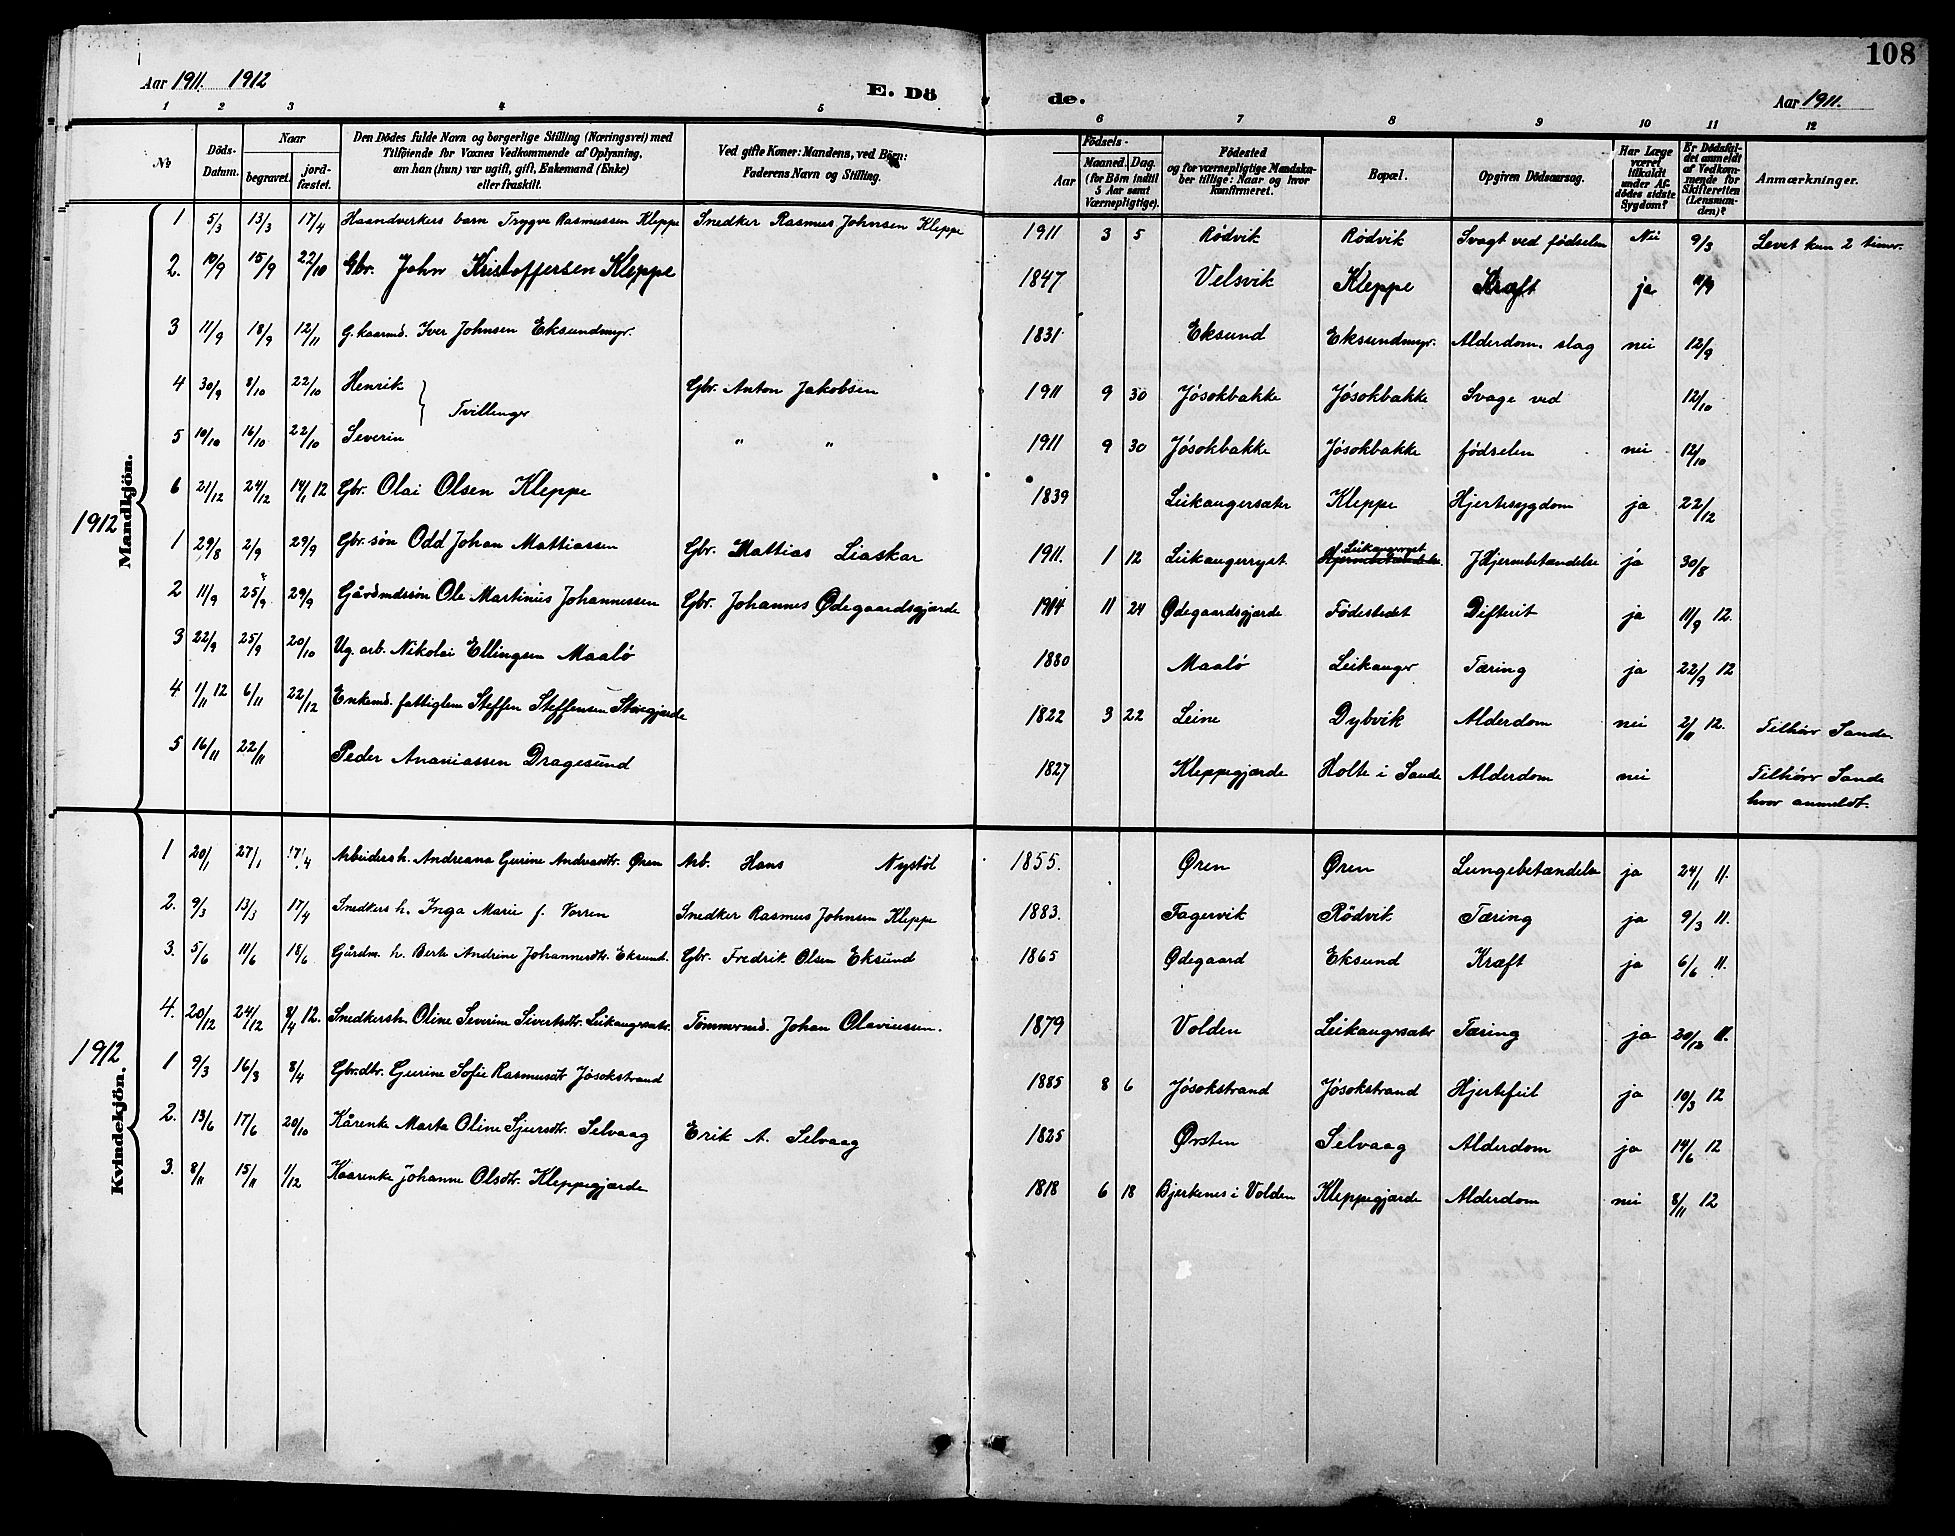 108
Aar 1911. 1912
E. Dö
de.
Aar 1911.
1 2 3 4 5 6 7 8 9 10 11 12
No
Döds-Datum.
Naar
begravet.
jord-fæstet.
Den Dödes fulde Navn og borgerlige Stilling (Næringsvei) med
Tilföiende for Voxnes Vedkommende af Oplysning,
om han (hun) var ugift, gift, Enkemand (Enke)
eller fraskilt.
Ved gifte Koner: Mandens, ved Börn:
Faderens Navn og Stilling.
Födsels-
Aar
Maaned. Dag.
(for Börn indtil
5 Aar samt
Værnepligtige).
Födested
og for værnepligtige Mandska-
ber tillige: Naar og hvor
konfirmeret.
Bopæl.
Opgiven Dödsaarsag.
Har Læge
været
tilkaldt
under Af-
dödes sidste
Sygdom?
Er Dödsfal-
det anmeldt
af Vedkom-
mende for
Skifteretten
(Lensman-
den)?
Anmærkninger.
Mandkjön.
1 5/3 13/3 17/4 Haandverkers barn Trygve Rasmussen Kleppe Snedker Rasmus Johnsen Kleppe 1911 3 5 Rødvik Rødvik Svagt ved fødselen Nei 9/3 Levet kun 2 timer.
2. 10/9 15/9 22/10 Gbr. John Kristoffersen Kleppe 1847 Velsvik Kleppe Kræft ja 11/9
3 11/9 18/9 12/11 G. kaarmd. Iver Johnsen Eksundmyr. 1831 Eksund Eksundmyr. Alderdom. slag nei 12/9
4 30/9 8/10 22/10 Henrik } Tvillinger Gbr. Anton Jakobsen 1911 9 30 Jósokbakke Jósokbakke Svage ved 12/10
5 10/10 16/10 22/10 Severin " " 1911 9 30 Jósokbakke Jósokbakke fødselen nei 12/10
6 21/12 24/12 14/1 12 Gbr. Olai Olsen Kleppe 1839 Leikangersæter Kleppe Hjertesygdom ja 22/12
1912
1 29/8 2/9 29/9 Gbr. søn Odd Johan Mattiassen Gbr. Mattias Liaskar 1911. 1 12 Leikangerryst Leikangerryst Hjernebetændelse ja 30/8
2 11/9 25/9 29/9 Gårdmdssøn Ole Martinus Johannessen Gbr. Johannes Ødegaardsgjærde 1914 11 24 Ødegaardsgjærde Fødestedet Difterit ja 11/9 12.
3 22/9 25/9 20/10 Ug. arb. Nikolai Ellingsen Maalø 1880 Maalø Leikanger Tæring ja 22/9 12
4 1/11 12 6/11 22/12 Enkemd. fattiglem Steffen Steffensen Støregjærde 1822 3 22 Leine Dybvik Alderdom nei 2/11 12. Tilhører Sande
5 16/11 22/11 Peder Ananiassen Dragesund 1827 Kleppegjærde Holte i Sande Alderdom nei Tilhører Sande
hvor anmeldt.
Kvindekjön.
1 20/1 27/1 17/4 Arbeidersh. Andreana Gurine Andreasdtr. Øren Arb. Hans Nystøl 1855. Øren Øren Lungebetændelse ja 24/1 11.
2. 9/3 13/3 17/4 Snedkers h. Inga Marie f. Vorren Snedker Rasmus Johnsen Kleppe 1883. Fagervik Rødvik Tæring ja 9/3 11.
3. 5/6 11/6 18/6 Gårdm. h. Berte Andrine Johannesdtr. Eksund. Gbr. Fredrik Olsen Eksund 1865 Ødegaard Eksund Kræft ja 6/6 11.
4. 20/12 24/12 8/4 12. Snedkersh. Oline Severine Sivertsdtr. Leikangersæter. Tømmermd. Johan Olaviussen. 1879 Volden Leikangersæter Tæring ja 20/12 11.
1912
1 9/3 16/3 8/4 Gbr.dtr. Gurine Sofie Rasmusdtr. Jósokstrand 1885 8 6 Jósokstrand Jósokstrand Hjertefeil ja 10/3 12
2. 13/6 17/6 20/10 Kårenke Marta Oline Sjursdtr. Selvaag Erik A. Selvaag 1825 Ørsten Selvaag Alderdom ja 14/6 12
3. 8/11 15/11 1/12 Kaarenke Johanne Olsdtr. Kleppegjærde 1818 6 18 Bjerkenes i Volden Kleppegjærde Alderdom nei 8/11 12